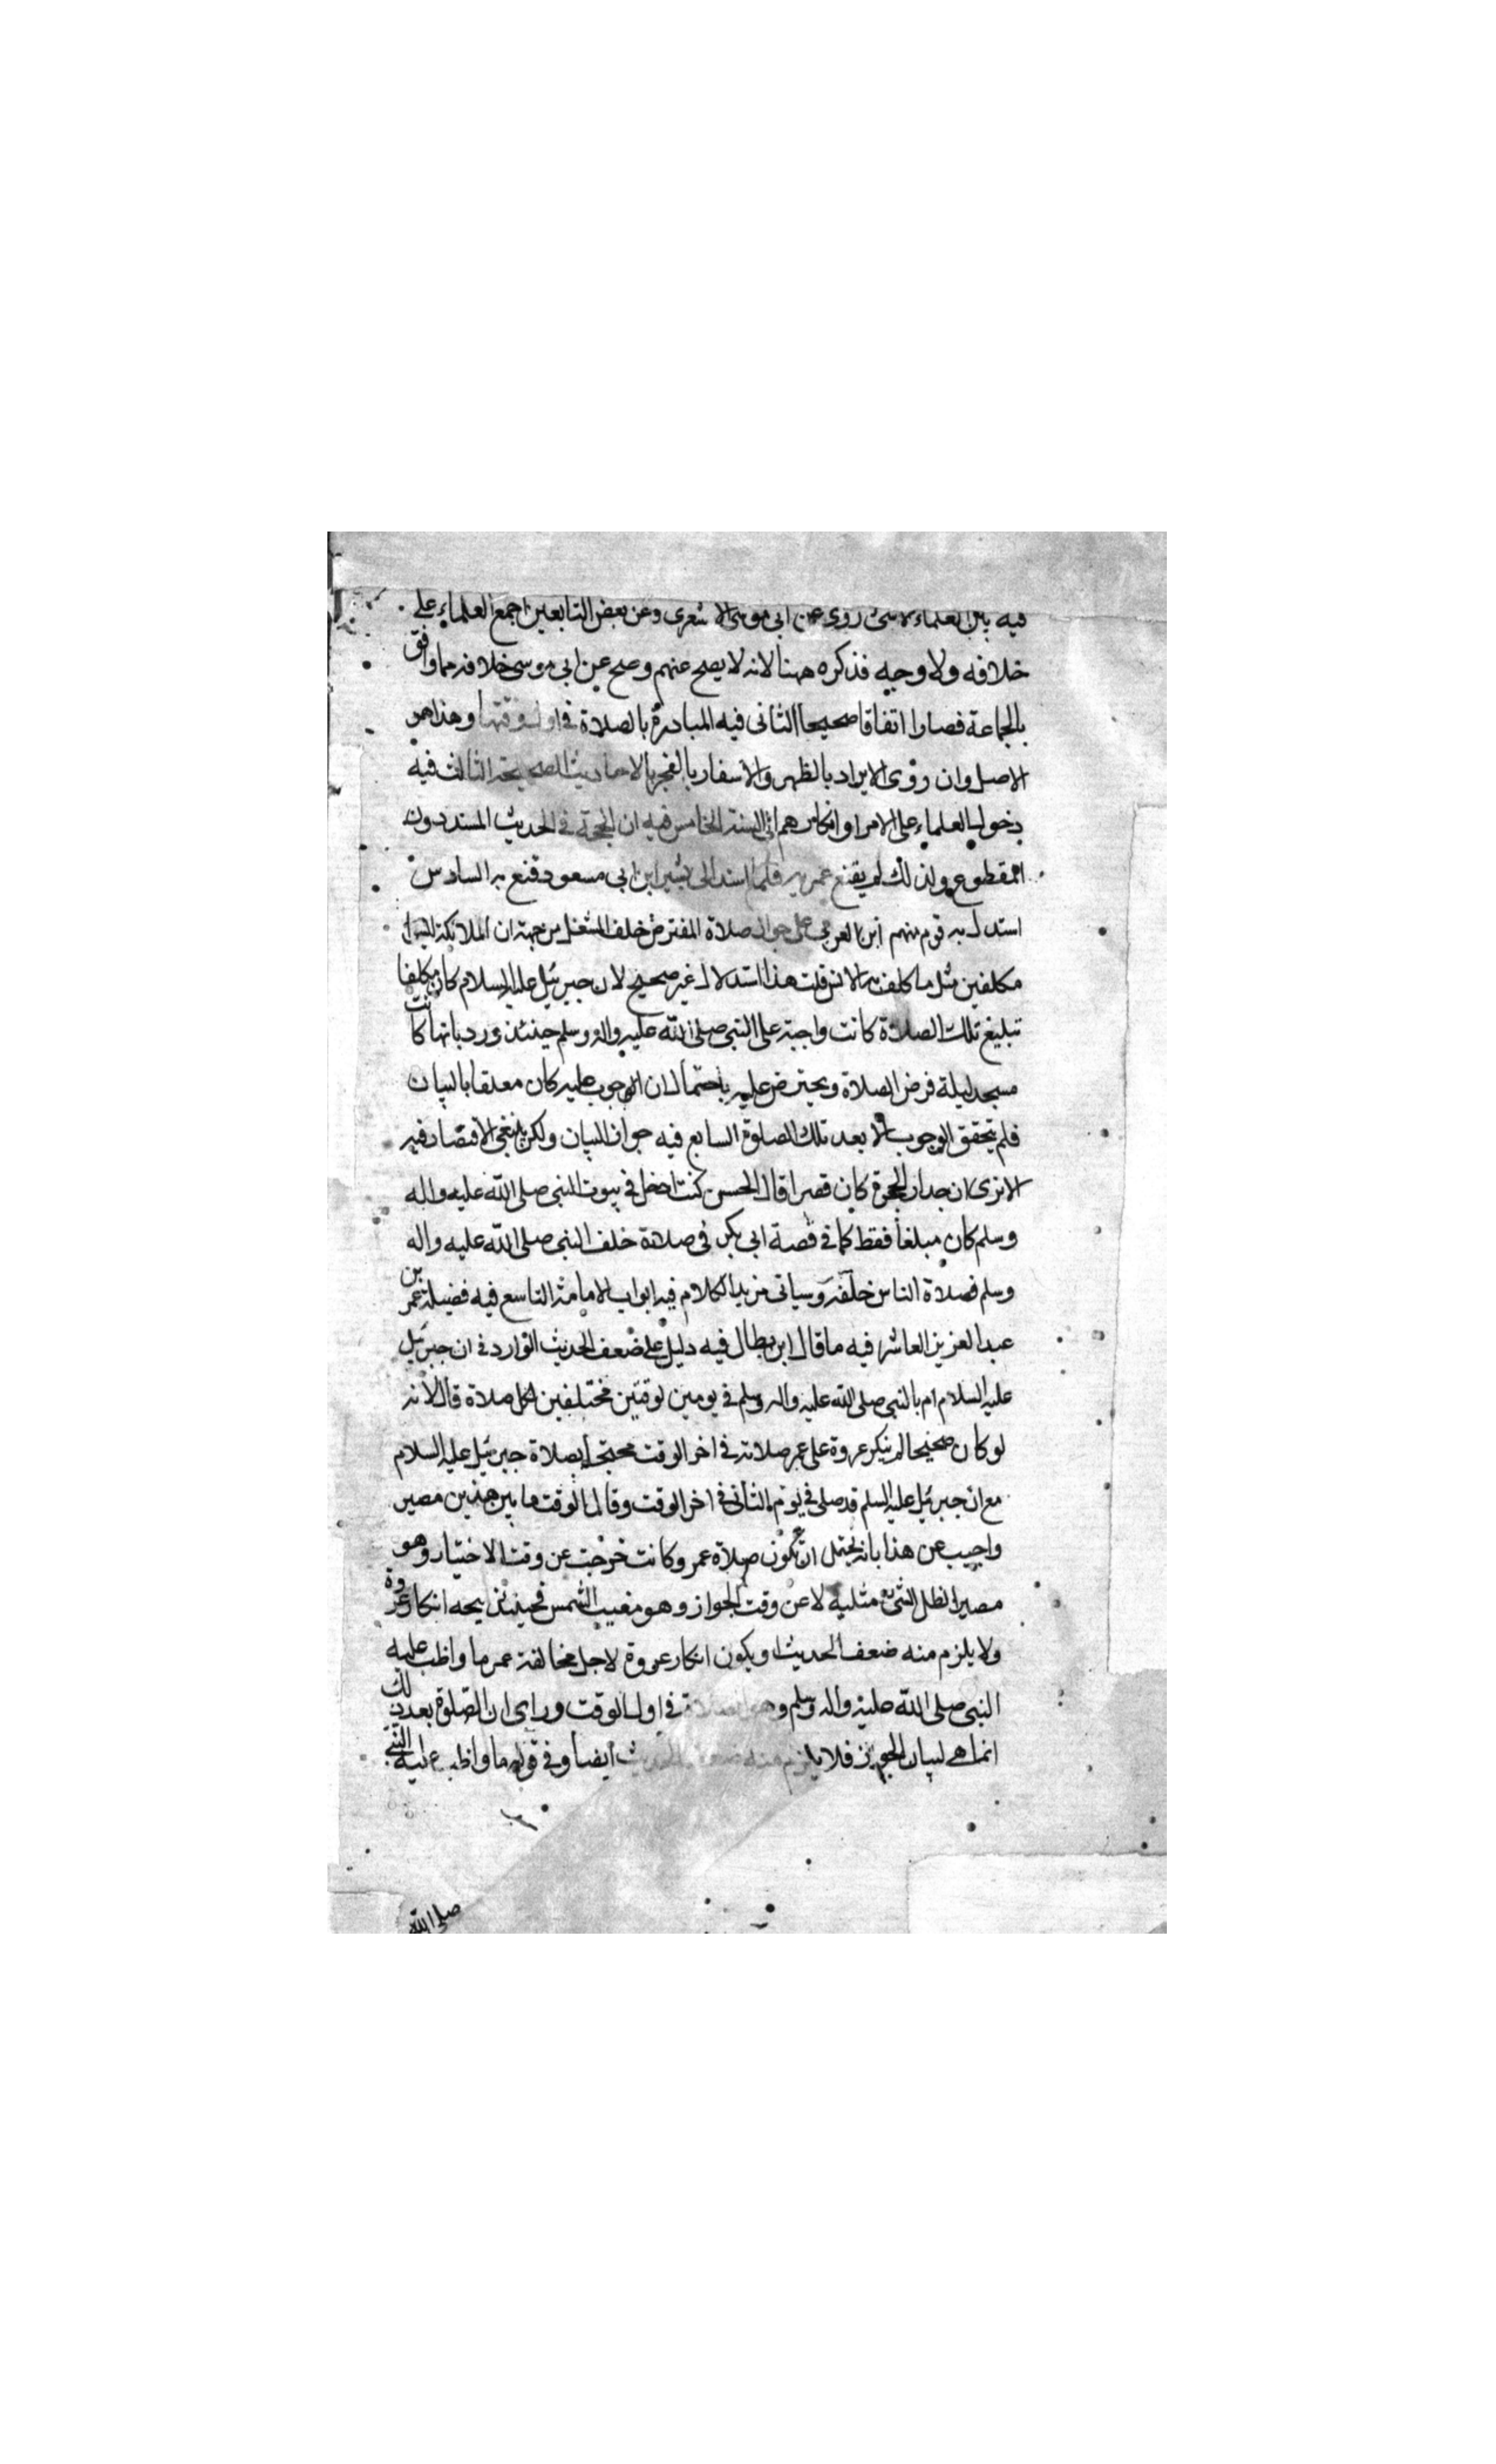 فيه بين العلماء الا شئ روى عن ابى موسى الاشعرى وعن بعض التابعين اجمع العلماء على
خلافه ولا وجه فذكره ههنا لانه لا يصح عنهم وصح عن ابى موسى خلافه مما وافق
بالجماعة فصارا اتفاقا صحيحا الثانى فيه المبادرة بالصلاة فى اول وقتها وهذا هو
الاصل وان روى الايراد بالظهر والاسفار بالفجر بالاحاديث الصحيحة الثالث فيه
دخول العلماء على الامراو انكارهم السنة الخامس فيه ان الحجة فى الحديث المسند دون
المقطوع ولذلك لم يقنع عمر به فلما اسند الى بشير ابن ابى مسعود قنع به السادس
استدل به قوم منهم ابن العربى على جواز صلاة المفترض خلف المتنفل من جهة ان الملائكة ليسوا
مكلفين مثل ما كلف به الانس قلت هذا استدلال غير صحيح لان جبرئيل عليه السلام كان مكلفا
تبليغ تلك الصلاة كانت واجبة على النبى صلى الله عليه واله وسلم حينئذ ورد بانها كانت
مسجد ليلة فرض الصلاة ويعترض عليه باحتمال ان الوجوب عليه كان معلقا بالبيان
فلم يتحقق الوجوب الا بعد تلك الصلوة السابع فيه جواز البيان ولكن ينبغى الاقتصاد فيه
الا ترى ان جدار الحجرة كان قصيرا قال الحسن كنت ادخل فى بيوت النبى صلى الله عليه واله
وسلم كان مبلغا فقط كما فى قصة ابى بكر فى صلاة خلف النبى صلى الله عليه واله
وسلم فصلاة الناس خلفه وسياتى مزيد الكلام فيه ابواب الامامة التاسع فيه فضيلة عمر بن
عبد العزيز العاشر فيه ما قال ابن بطال فيه دليل على ضعف الحديث الوارد فى ان جبرئيل
عليه السلام ام بالنبى صلى الله عليه واله وسلم فى يومين لوقتين مختلفين لكل صلاة قال لانه
لو كان صحيحا لم ينكر عروة على عمر صلاته فى اخر الوقت محتجا بصلاة جبرئيل عليه السلام
مع ان جبرئيل عليه السلم قد صلى فى يوم الثانى فى اخر الوقت وقال الوقت ما بين هذين مصير
واجيب عن هذا بانه يحتمل ان تكون صلاة عمر وكانت خرجت عن وقت الاختيار وهو
مصير الظل الشئ مثليه لا عن وقت الجواز وهو مغيب الشمس فحينئذ يتجه انكار عروة
ولا يلزم منه ضعف الحديث او يكون انكار عروة لاجل مخالفة عمر ما واظب عليه
النبى صلى الله عليه واله وسلم وهو الصلاة فى اول الوقت وراى ان الصلوة بعد ذلك
انما هى لبيان الجواز فلا يلزم منه ضعف الحديث ايضا وفى قوله ما واظب عليه النبى
صلى الله